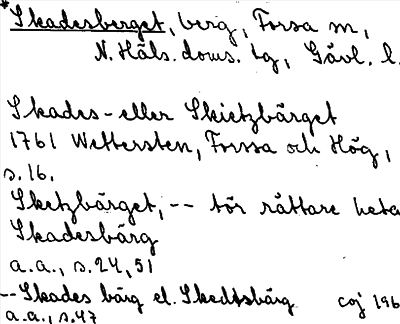 *Skadesberget, berg, Forsa sn,
N. Häls. doms. tg, Gävl. l.
Skades- eller Skietzbärget
1761 Wettersten, Forssa och Hög,
s. 16.
Sketzbärget, -- tör rättare heta
Skadesbärg
a.a., s. 24, 51
-- Skades bärg el. Skedtsbärg coj 196
a.a., s. 47